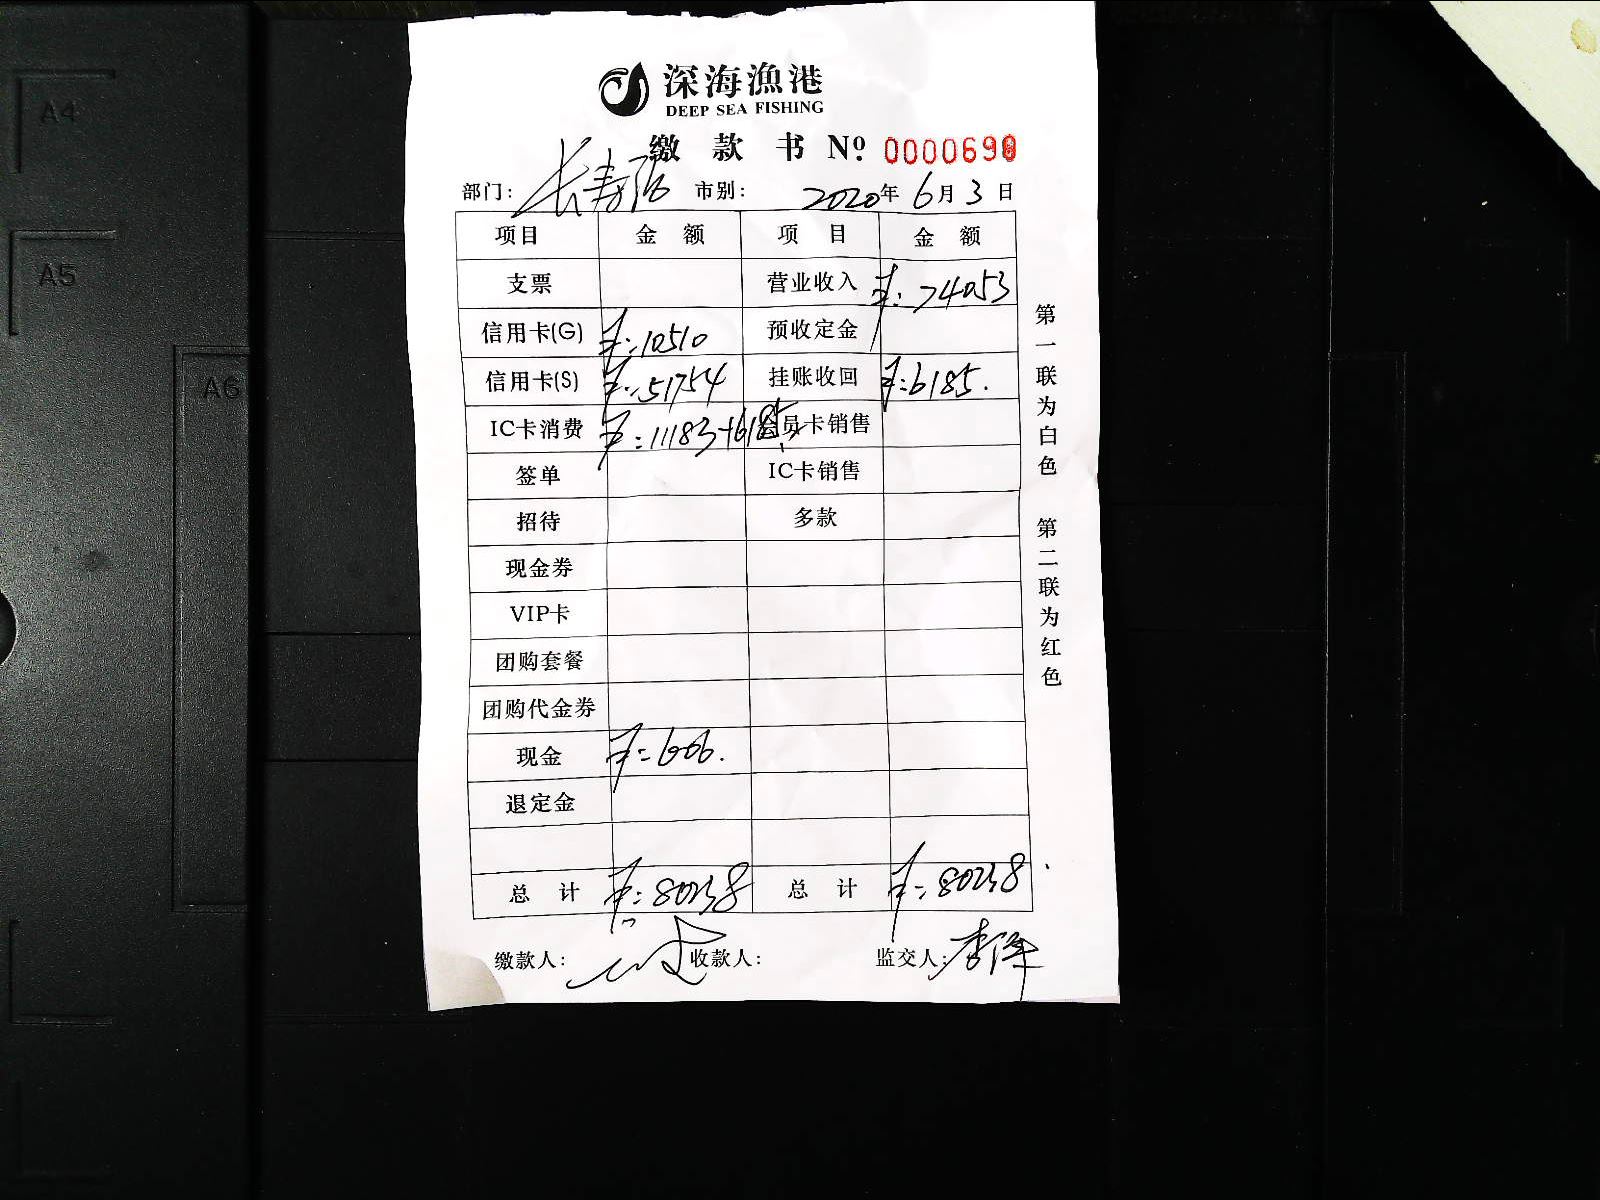 A4
A5
A6
深海漁港
DEEP SEA FISHING
缴款书 Nº 0000690
部门： 长寿路 市别： 2020年6月3日
项目 金额 项目 金额
支票 营业收入 ¥:74053
信用卡(G) ¥:10510 预收定金
信用卡(S) ¥:51754 挂账收回 ¥:6185.
IC卡消费 ¥:11183+6185 会员卡销售
签单 IC卡销售
招待 多款
现金券
VIP卡
团购套餐
团购代金券
现金 ¥:606.
退定金
总计 ¥:80238 总计 ¥:80238
缴款人： 收款人： 监交人：
第一联为白色
第二联为红色